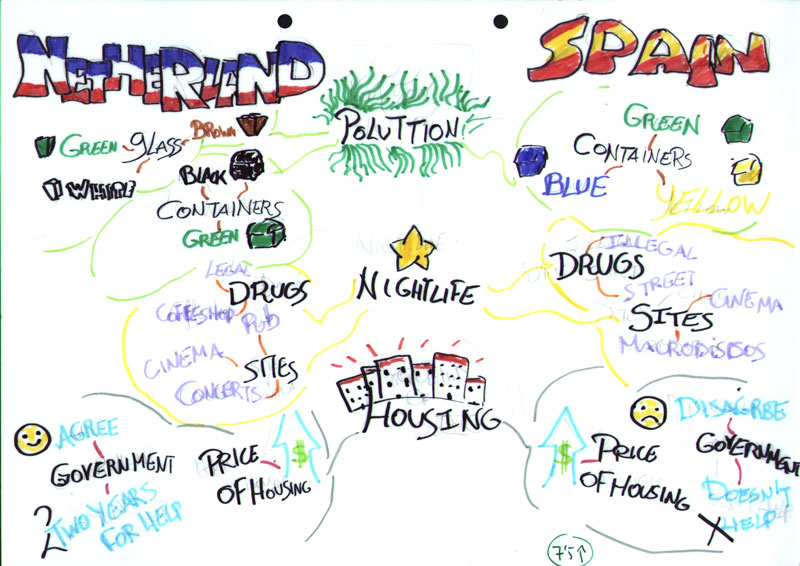 NETHERLAND
SPAIN
POLUTTION
GREEN
GLASS
BROWN
WHITE
BLACK
CONTAINERS
GREEN
GREEN
CONTAINERS
BLUE
YELLOW
NIGHTLIFE
LEGAL
DRUGS
COFFESHOP
PUB
CINEMA
SITES
CONCERTS
ILLEGAL
DRUGS
STREET
CINEMA
SITES
MACRODISCOS
HOUSING
AGREE
GOVERNMENT
2
TWO YEARS
FOR HELP
PRICE
OF HOUSING
$
DISAGREE
GOVERNMENT
DOESN'T
HELP
PRICE
OF HOUSING
$
7'5↑